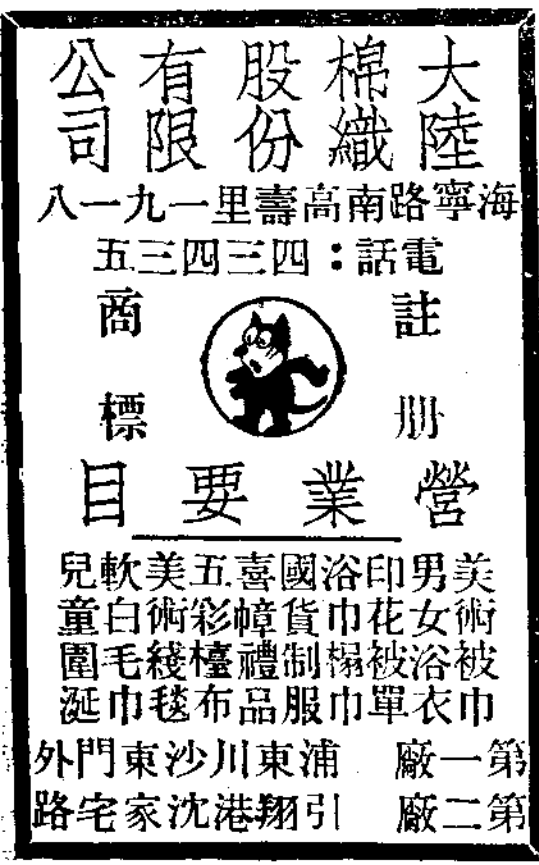 大陸棉織股份有限公司
海寧路南高壽里一九一八
電話：四三四三五
註册
商標
營業要目
美術被巾
男女浴衣
印花被單
浴巾榻巾
國貨制服
喜幛禮品
五彩檯布
美術綫毯
軟白毛巾
兒童圍涎
第一廠 浦東川沙東門外
第二廠 引翔港沈家宅路